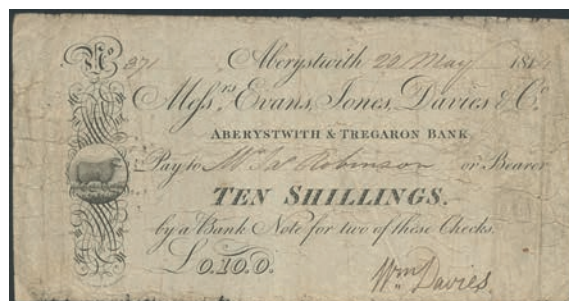 No 371 Aberystwith 20 May 181
Messrs. Evans, Jones, Davies & Co.
ABERYSTWITH & TREGARON BANK
Pay to Mr Jas Robinson or Bearer
TEN SHILLINGS.
by a Bank Note for two of these Checks.
£0.10.0.
Wm Davies.